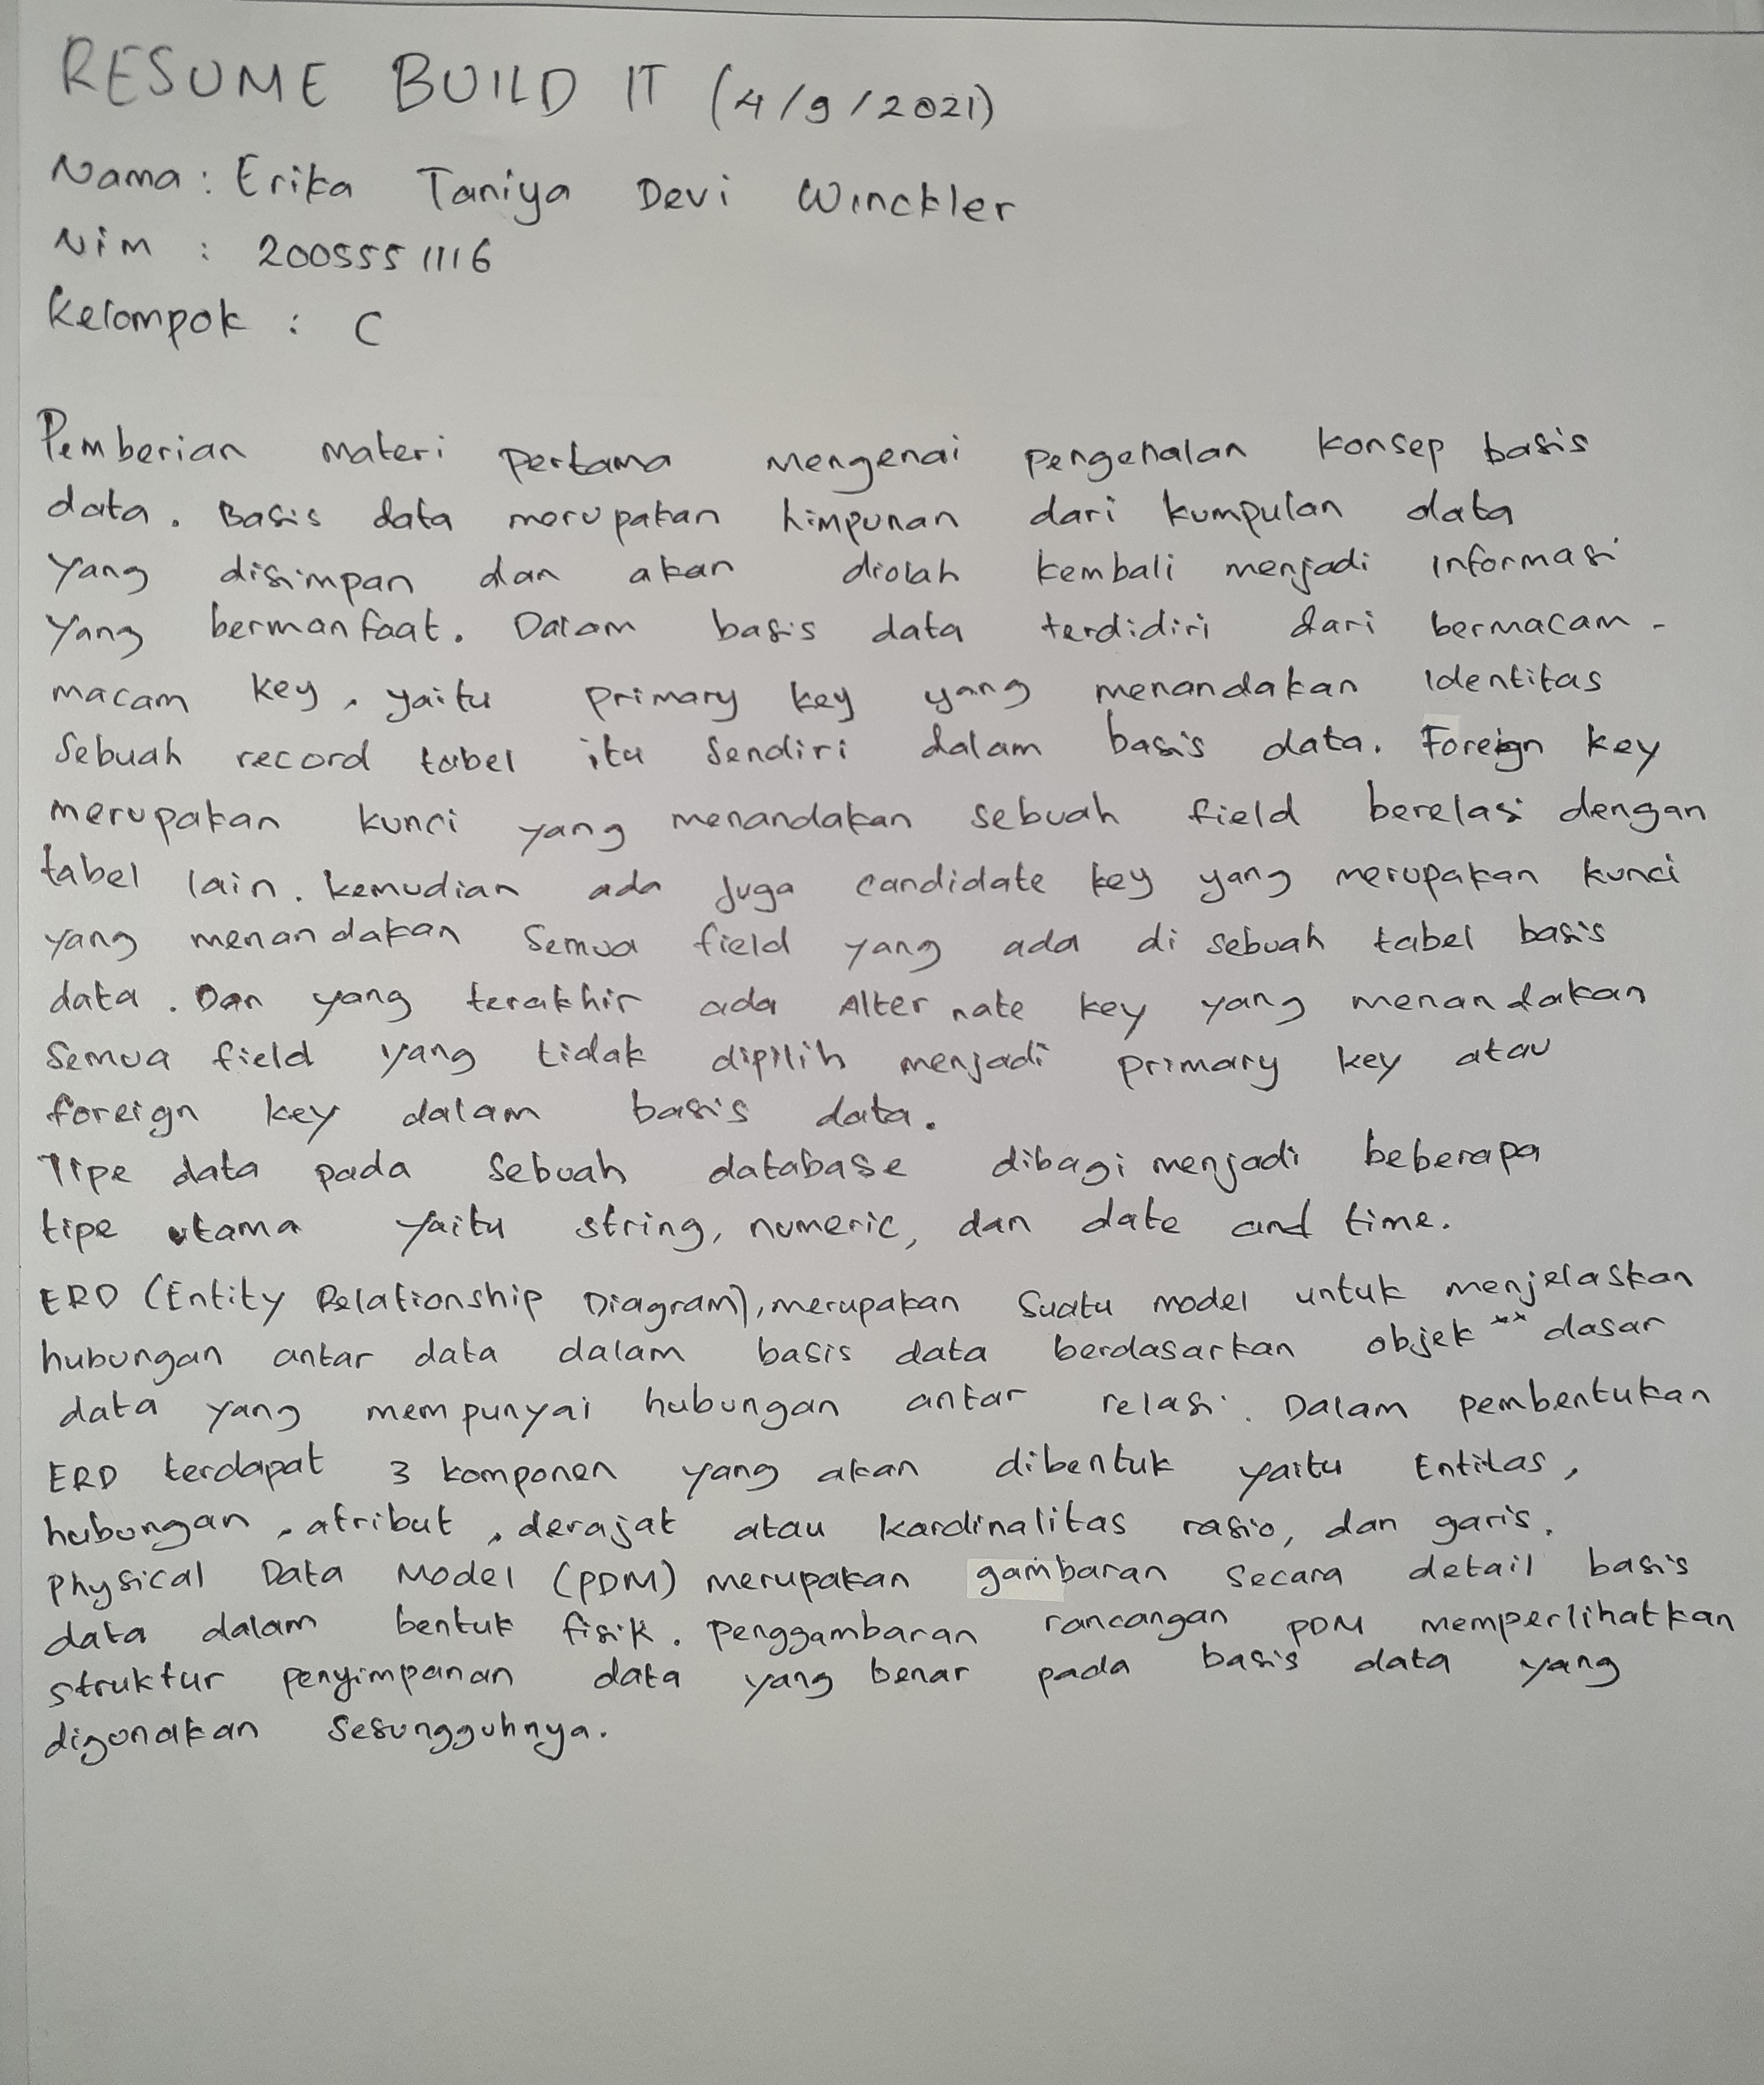 RESUME BUILD IT (4/9/2021)
Nama : Erika Taniya Devi Winckler
Nim : 2005551116
Kelompok : C
Pemberian materi pertama mengenai pengenalan konsep basis
data. Basis data merupakan himpunan dari kumpulan data
yang disimpan dan akan diolah kembali menjadi informasi
yang bermanfaat. Dalam basis data terdidiri dari bermacam-
macam key, yaitu primary key yang menandakan identitas
sebuah record tabel itu sendiri dalam basis data. Foreign key
merupakan kunci yang menandakan sebuah field berelasi dengan
tabel lain. kemudian ada juga candidate key yang merupakan kunci
yang menandakan semua field yang ada di sebuah tabel basis
data. Dan yang terakhir ada Alternate key yang menandakan
semua field yang tidak dipilih menjadi primary key atau
foreign key dalam basis data.
Tipe data pada sebuah database dibagi menjadi beberapa
tipe utama yaitu string, numeric, dan date and time.
ERD (Entity Relationship Diagram), merupakan suatu model untuk menjelaskan
hubungan antar data dalam basis data berdasarkan objek ** dasar
data yang mempunyai hubungan antar relasi. Dalam pembentukan
ERD terdapat 3 komponen yang akan dibentuk yaitu Entitas,
hubungan, atribut, derajat atau kardinalitas rasio, dan garis.
Physical Data Model (PDM) merupakan gambaran secara detail basis
data dalam bentuk fisik. Penggambaran rancangan PDM memperlihatkan
struktur penyimpanan data yang benar pada basis data yang
digunakan sesungguhnya.